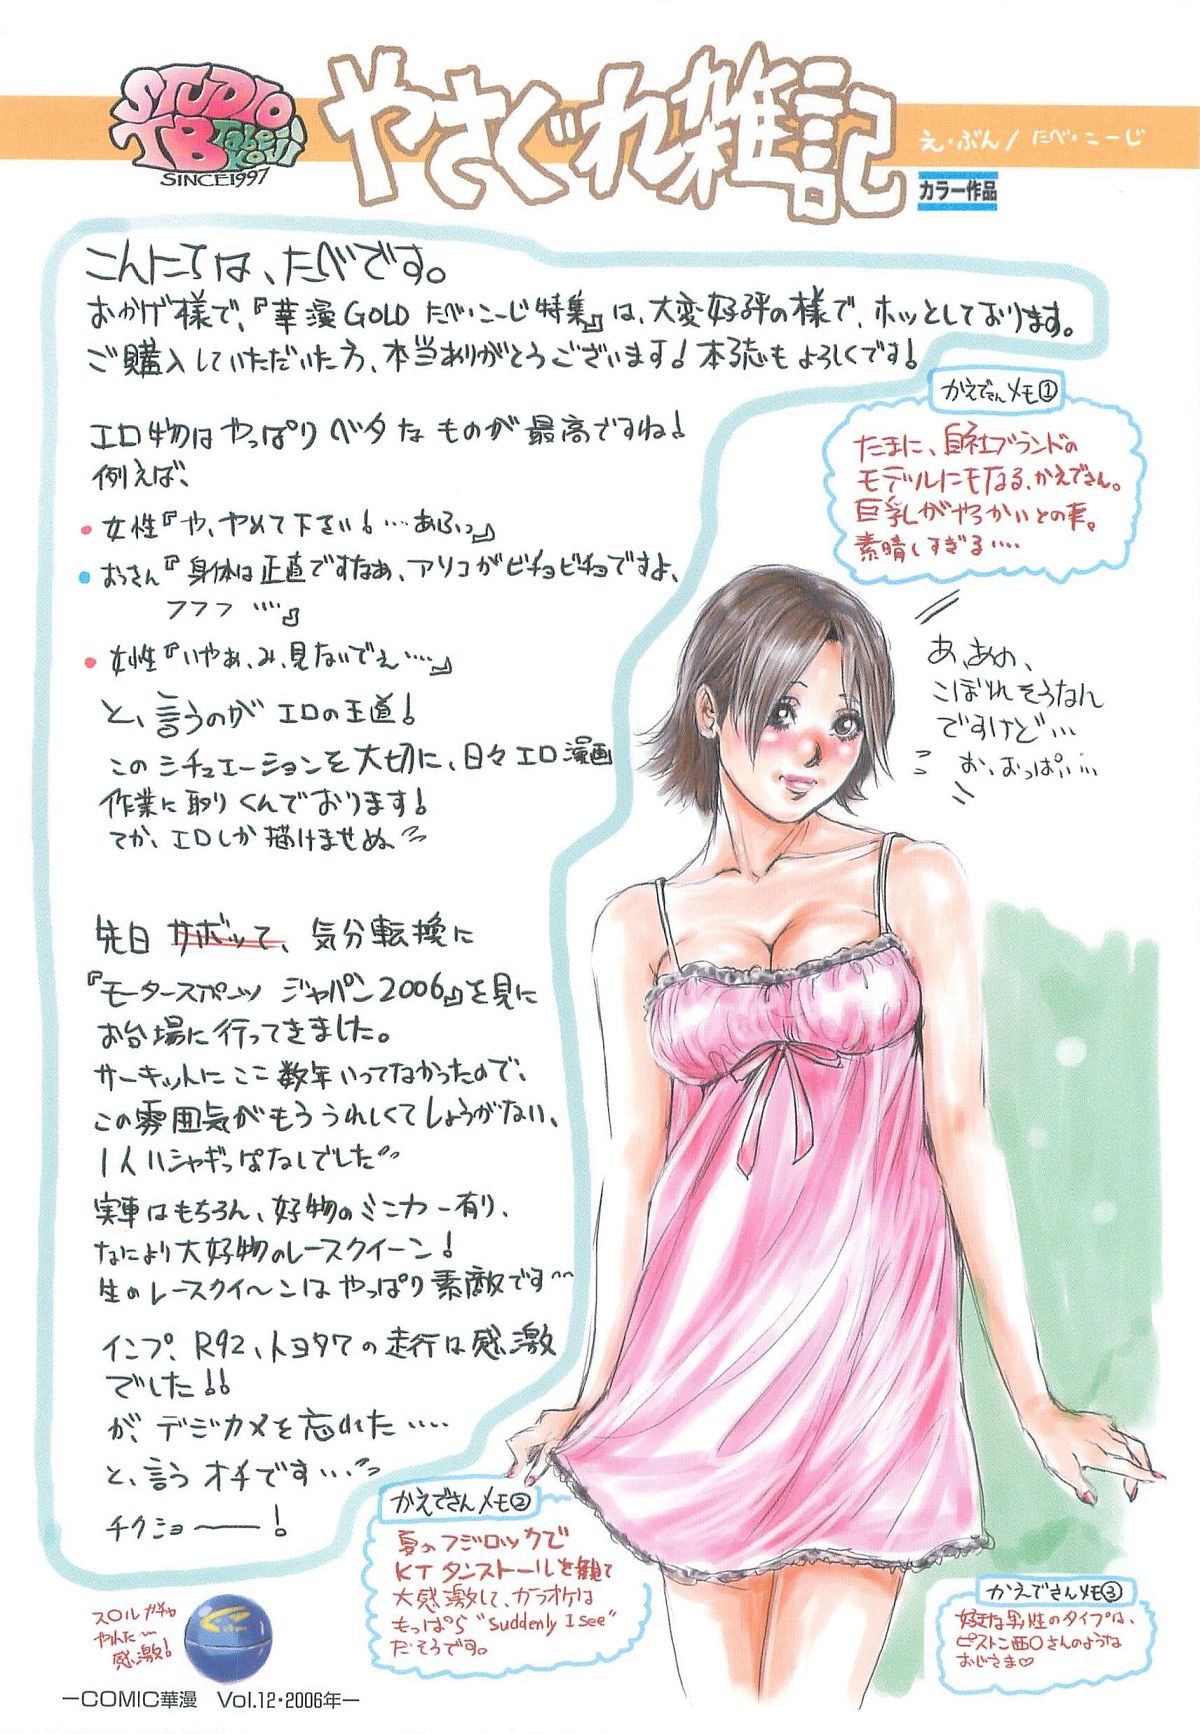 STUDIO
TB Tabe Koji
SINCE1997
やさぐれ雑記
え・ぶん/たべ・こーじ
カラー作品
こんにちは、たべです。
おかげ様で、『華漫GOLD たべ・こーじ特集』は、大変好評の様で、ホッとしております。
ご購入していただいた方、本当ありがとうございます!本る志もよろしくです!
かえでさんメモ①
たまに、自社ブランドの
モデルにもなる、かえでさん。
巨乳がやっかいとの事。
素晴しすぎる‥‥
エロ物はやっぱりベタなものが最高ですね!
例えば、
・女性『や、やめて下さい!‥‥あふっ』
・おっさん『身体は正直ですなぁ、アソコがビチョビチョですよ、
フフフ‥‥』
・女性『いやぁ、み、見ないでぇ‥‥』
と、言うのがエロの王道!
このシチュエーションを大切に、日々エロ漫画
作業に取りくんでおります!
てか、エロしか描けませぬ、
あ、あの、
こぼれそうなん
ですけど‥‥
お、おっぱい‥‥
先日サボッて、気分転換に
『モータースポーツ ジャパン2006』を見に
お台場に行ってきました。
サーキットにここ数年いってなかったので、
この雰囲気がもううれしくてしょうがない、
1人ハシャギっぱなしでした
実車はもちろん、好物のミニカー有り、
なにより大好物のレースクイーン!
生のレースクイ〜ンはやっぱり素敵です〜
インプ、R92、トヨタ7の走行は感激
でした!!
が、デジカメを忘れた‥‥
と、言うオチです‥‥
チクショ――!
かえでさんメモ②
夏のフジロックで
KTタンストールを観て
大感激して、カラオケは
もっぱら"Suddenly I see"
だそうです。
かえでさんメモ③
好きな男性のタイプは、
ピストン西〇さんのような
おじさま♡
スロルガチャ
やんた〜
感激!
―COMIC華漫 Vol.12・2006年―